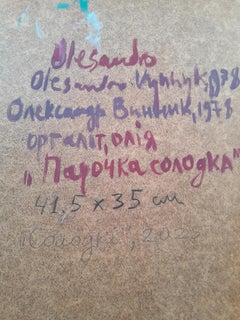 Olesandro
Olesandro
Олександр Винник, 1978
оргаліт, олія
„Парочка солодка“
41,5 х 35 см